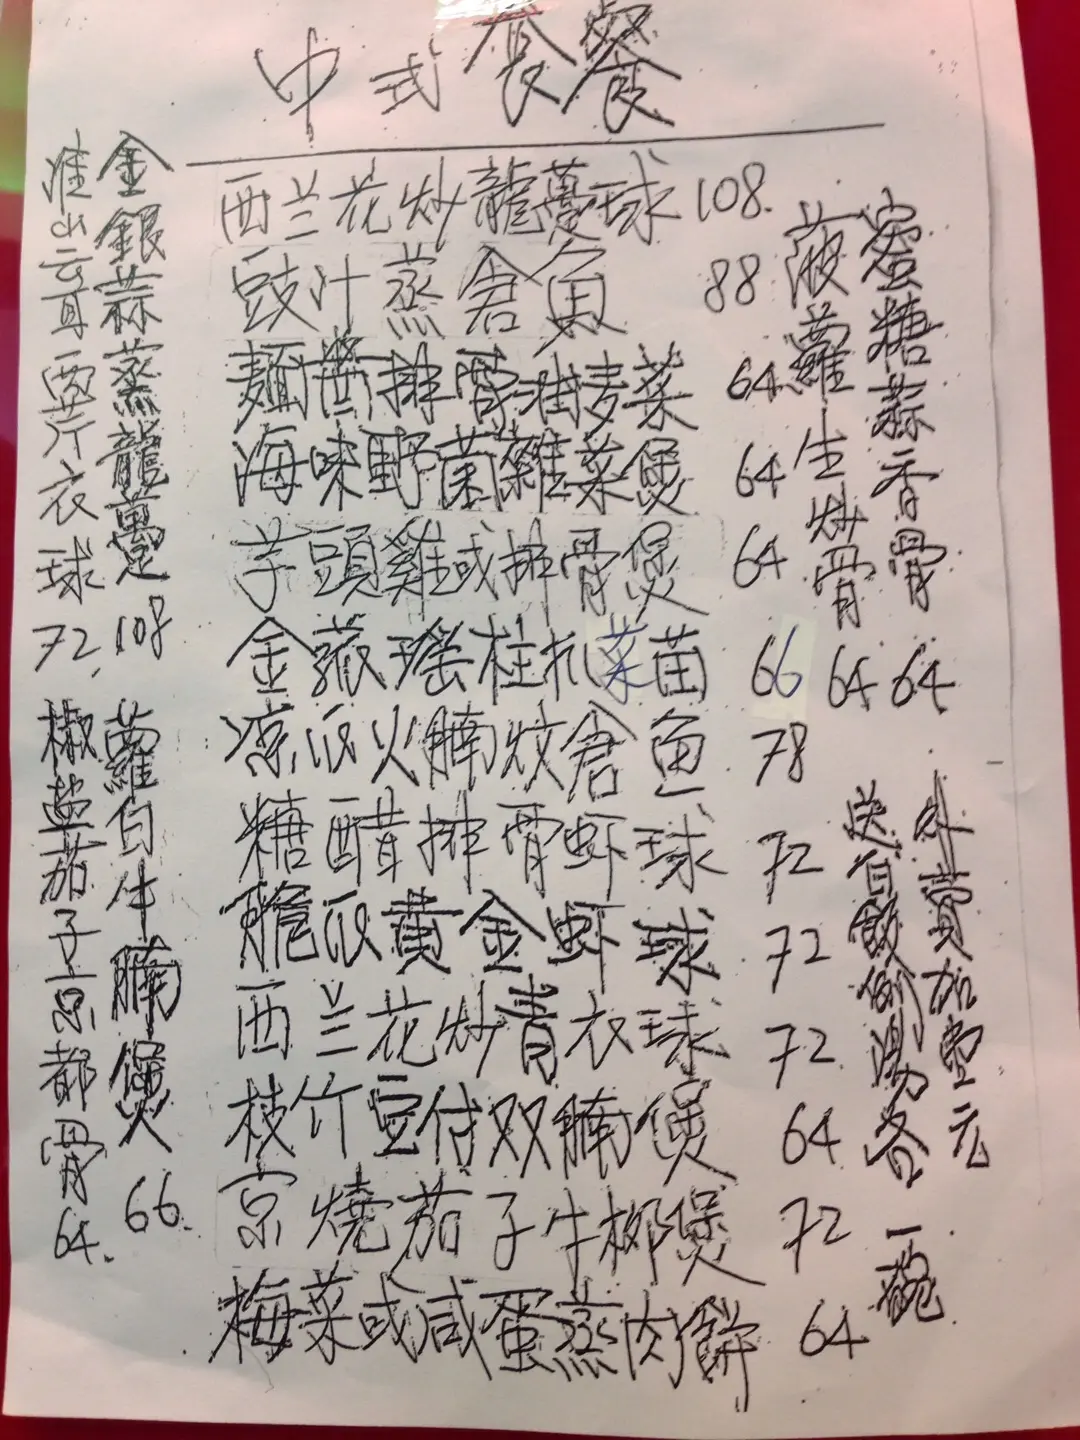 中式套餐
西兰花炒龍躉球 108.
豉汁蒸倉魚 88
麵醬排骨油麦菜 64
海味野菌雜菜煲 64
芋頭雞或排骨煲 64
金菇瑶柱扒菜苗 66
凉瓜火腩炆倉魚 78
糖醋排骨虾球 72
脆瓜黄金虾球 72
西兰花炒青衣球 72
枝竹豆付双腩煲 64
京燒茄子牛柳煲 72
梅菜或咸蛋蒸肉餅 64
蜜糖蒜香骨 64
菠蘿生炒骨 64
外賣加壹元
送白飯例湯各一碗
金銀蒜蒸龍躉 108
淮山云耳西芹衣球 72
蘿白牛腩煲 66.
椒塩茄子京都骨 64.